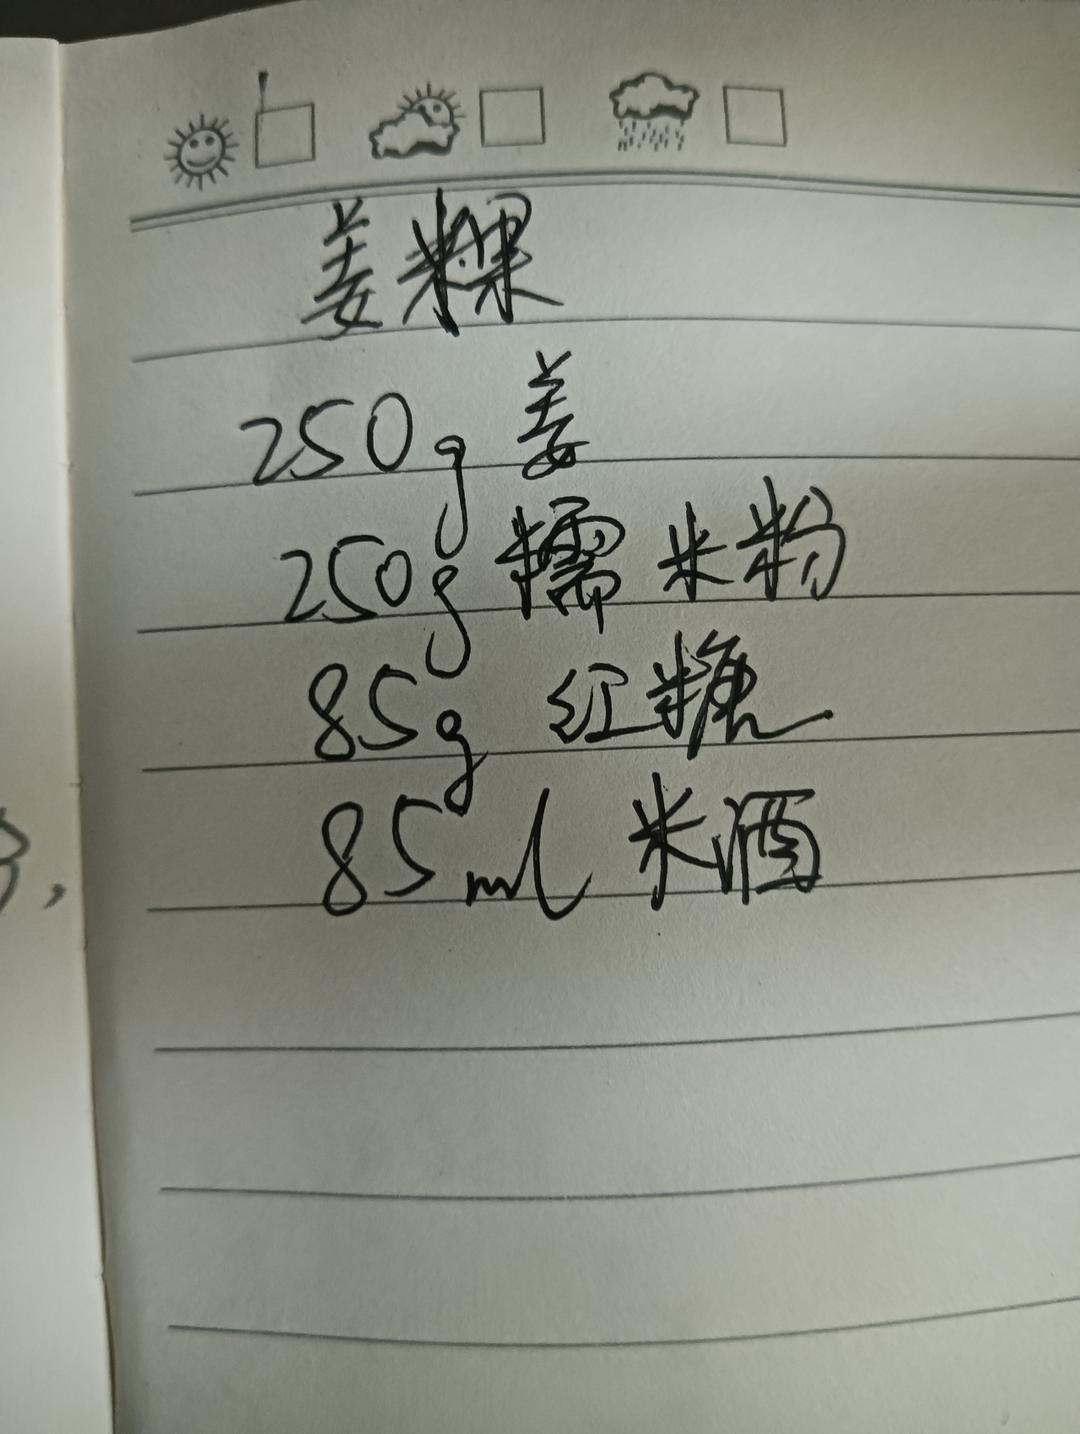 姜粿
250g 姜
250g 糯米粉
85g 红糖
85ml 米酒